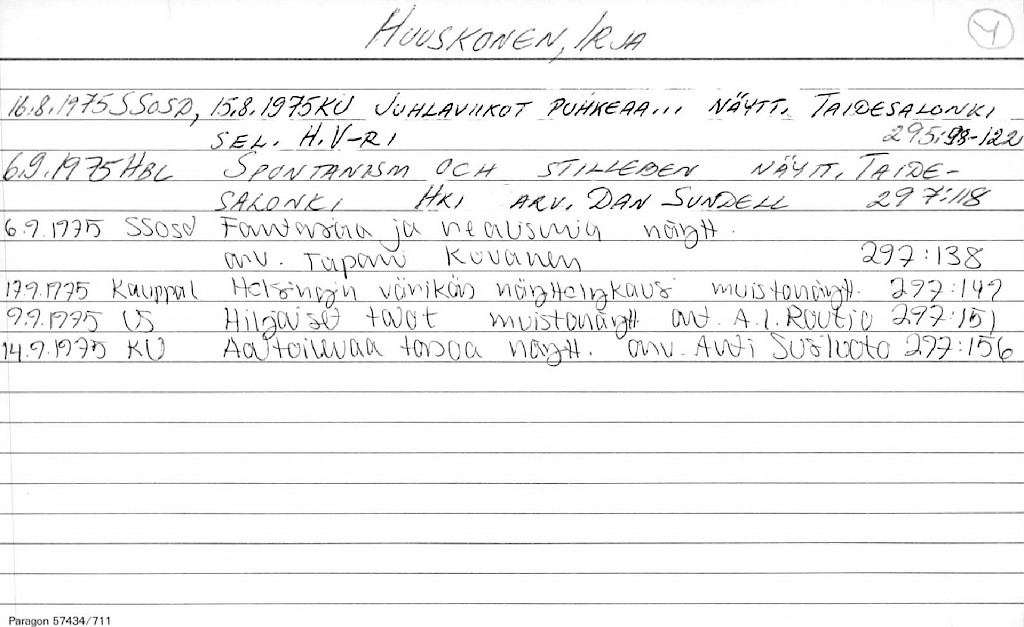 HUUSKONEN, IRJA
4
16.8.1975 SSOSD, 15.8.1975 KU JUHLAVIIKOT PUHKEAA... NÄYTT. TAIDESALONKI
SEL. H.V-RI 295:98-122
6.9.1975 HBL SPONTANISM OCH STILLEBEN NÄYTT. TAIDE-
SALONKI HKI ARV. DAN SUNDELL 297:118
6.9.1975 SSosd Fantasiaa ja realismia näytt.
arv. Tapani Kovanen 297:138
17.9.1975 Kauppal Helsingin värikäs näyttelykausi muistonäytt. 297:149
9.9.1975 US Hiljaiset talot muistonäytt. arv. A.I. Routio 297:151
14.9.1975 KU Aaltoilevaa tasoa näytt. arv. Antti Susiluoto 297:156
Paragon 57434/711